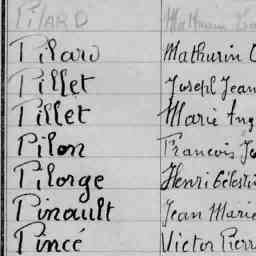 PILARD Mathurin
Pilard Mathurin
Pillet Joseph Jean
Pillet Marie Ang
Pilon Francois
Pilorge Henri Célesti
Pinault Jean Marie
Pincé Victor Pierr